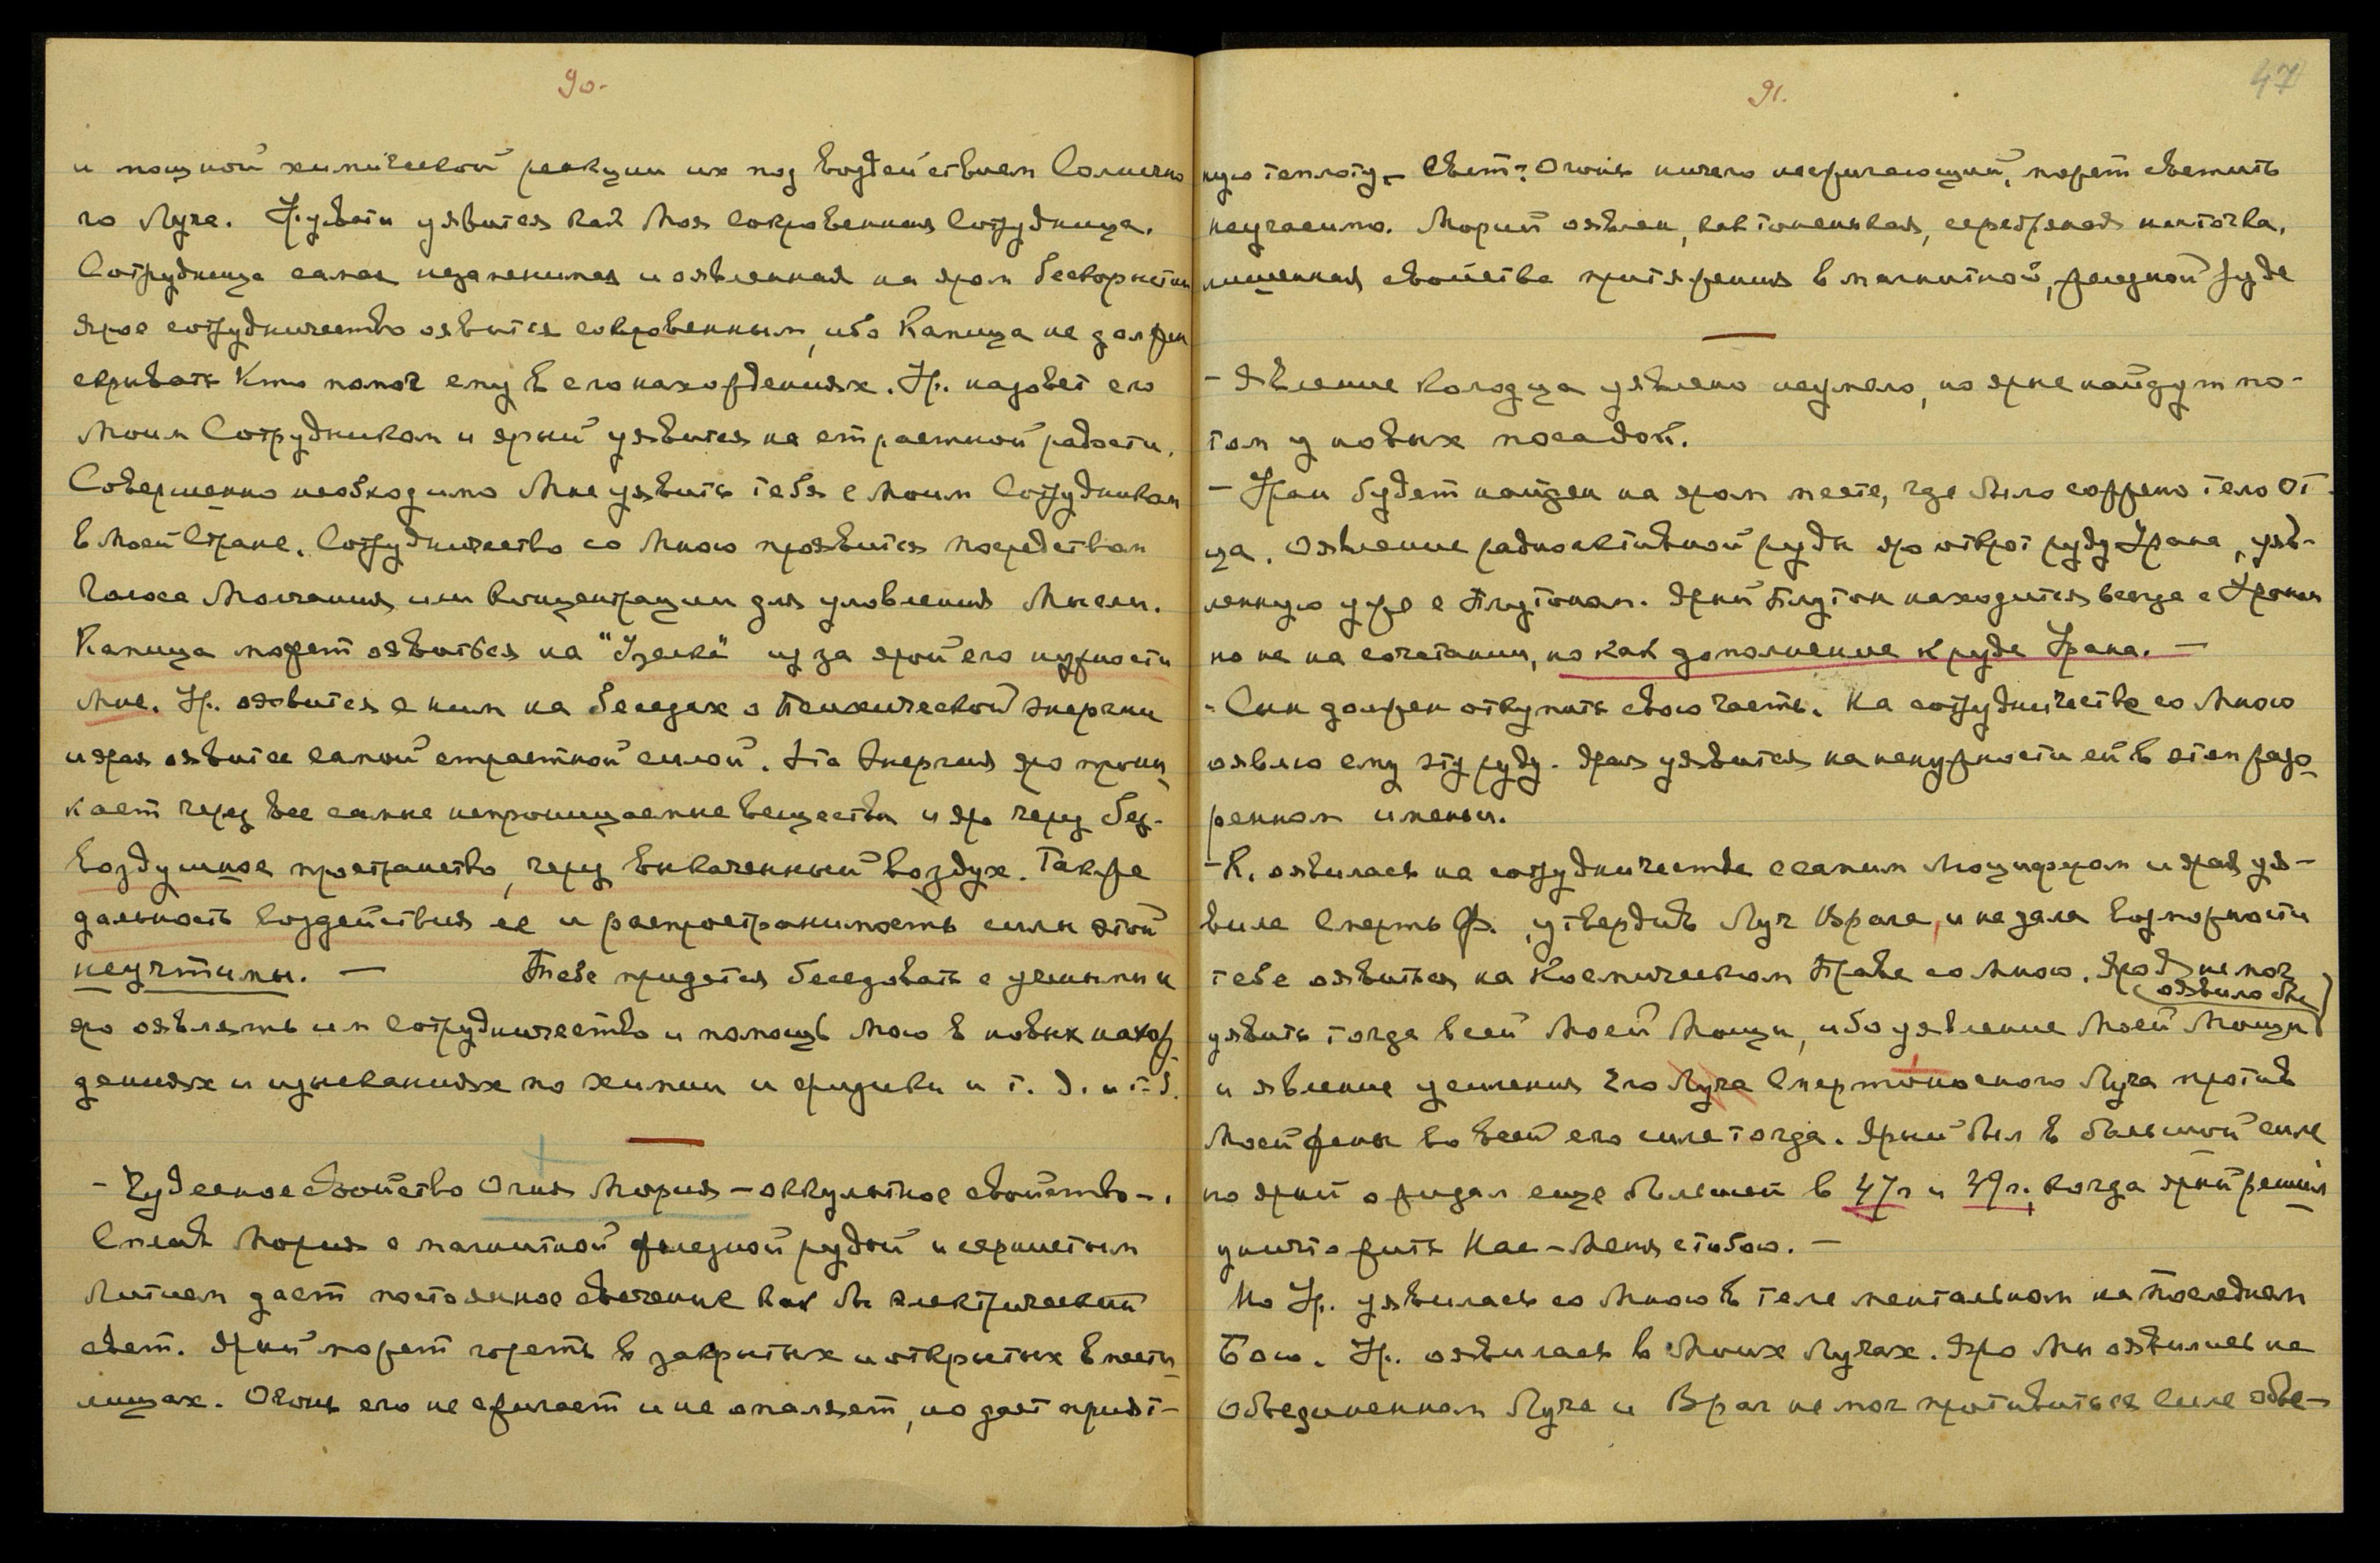 90.
и мощной химической реакции их под воздействием Солнечно
го Луча. Ур.увати уявится как Моя Сокровенная Сотрудница.
Сотрудница самая незаменимая и оявленная на яром бескорыстии
Ярое сотрудничество оявится сокровенным, ибо Капица не должен
скрывать Кто помог ему в его нахождениях. Ур. назовет его
Моим Сотрудником и ярый уявится на страстной радости.
Совершенно необходимо Мне уявить тебя с Моим Сотрудником
в Моей Стране. Сотрудничество со Мною проявится посредством
Голоса Молчания или концентрации для уловления Мысли.
Капица может оявиться на "Узеке" из за ярой его нужности
Мне. Ур. оявится с ним на беседах о Психической Энергии
и ярая оявится самой страстной силой. Эта Энергия яро прони
кает через все самые непроницаемые вещества и яро через без-
воздушное пространство, через выкаченный воздух. Также
дальность воздействия ее и распространимость силы этой
неучтимы. — Тебе придется беседовать с учеными и
яро оявлять им сотрудничество и помощь Мою в новых нахож
дениях и изысканиях по химии и физике и т. д. и т. д.
- Чудесное свойство Огня Мория — оккультное свойство -.
Сплав Мория с магнитной железной рудой и сернистым
Литием дает постоянное свечение как бы электрический
свет. Ярый может гореть в закрытых и открытых вмести
лищах. Огонь его не сжигает и не опаляет, но дает прият-
91.
47
ную теплоту. Свет-Огонь ничего несжигающий, может светить
неугасимо. Морий оявлен, как тоненькая, серебряная ниточка,
лишенная свойства притяжения в магнитной, железной руде
- Явление колодца уявлено неумело, но ярые найдут по-
том у новых посадок.
- Уран будет найден на яром месте, где было сожжено тело От
ца. Оявление радиоактивной руды яро откроет руду Урана, уяв-
ленную уже с Плутоном. Ярый Плутон находится всегда с Ураном
но не на сочетании, но как дополнение к руде Урана. —
- Сын должен откупить свою часть. На сотрудничестве со Мною
оявлю ему эту руду. Ярая уявится на ненужности ей в этом разо
ренном имении.
- К. оявилась на сотрудничестве с самим Люцифером и ярая уя-
вила Смерть Ф., утвердив Луч Врага, и не дала возможности
тебе оявиться на Космическом Праве со Мною. Яро Я не мог
уявить тогда всей Моей Мощи, ибо уявление Моей Мощи (оявило бы)
и явление усиления Его Луча Смертоносного Луча против
Моей жены во всей его силе тогда. Ярый был в большой силе
но ярый ожидал еще большей в 47г и 49г., когда ярый решил
уничтожить Нас - Меня с тобою. —
Но Ур. уявилась со Мною в теле ментальном на Последнем
Бою. Ур. оявилась в Моих Лучах. Яро Мы оявились на
Объединенном Луче и Враг не мог противиться силе объе-